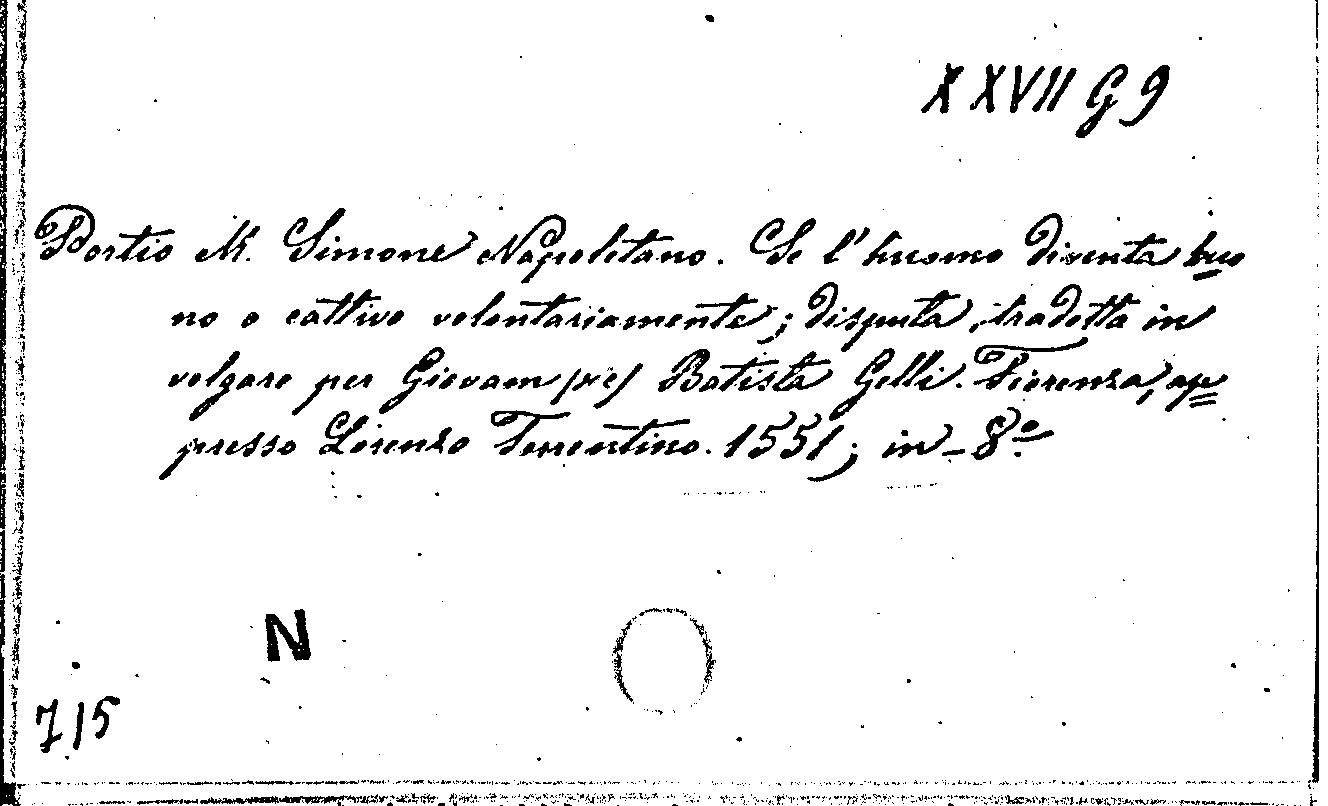 XXVII G 9
Portio M. Simone Napoletano. Se l'huomo diventa buo
no o cattivo volontariamente; disputa, tradotta in
volgare per Giovam (sic) Batista Gelli. Fiorenza, ap=
presso Lorenzo Torrentino. 1551; in-8º
N
715